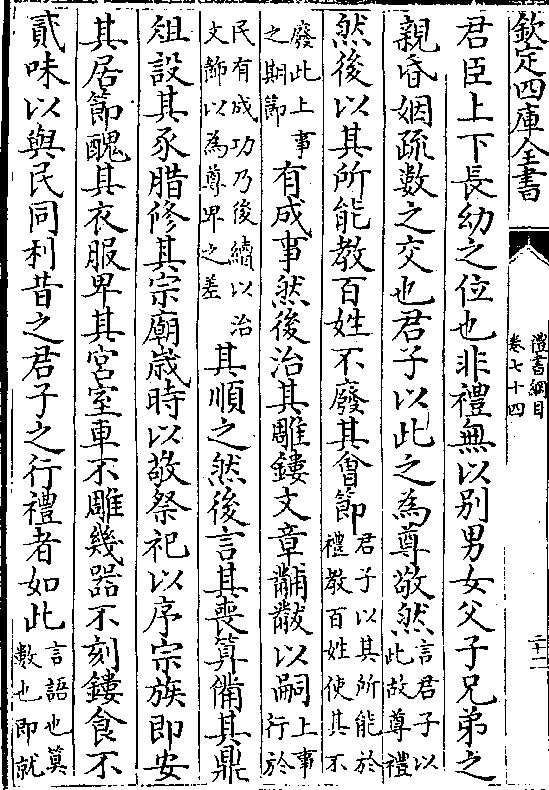 欽定四庫全書
禮書綱目
卷七十四
二十一
君臣上下長幼之位也非禮無以别男女父子兄弟之
親昏姻疏數之交也君子以此之為尊敬然言君子以此故尊禮
然後以其所能教百姓不廢其會節君子以其所能於禮教百姓使其不
廢此上事之期節有成事然後治其雕鏤文章黼黻以嗣上事行於
民有成功乃後續以治文飾以為尊卑之差其順之然後言其喪算備其鼎
俎設其豕腊修其宗廟歲時以敬祭祀以序宗族即安
其居節醜其衣服卑其宮室車不雕幾器不刻鏤食不
貳味以與民同利昔之君子之行禮者如此言語也算數也即就